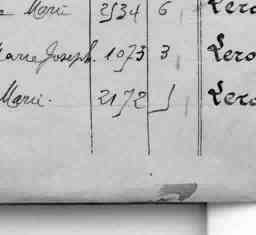 Marie 2534 6 Lero
Marie Joseph. 1073 3 Lero
Marie. 2172 Lero